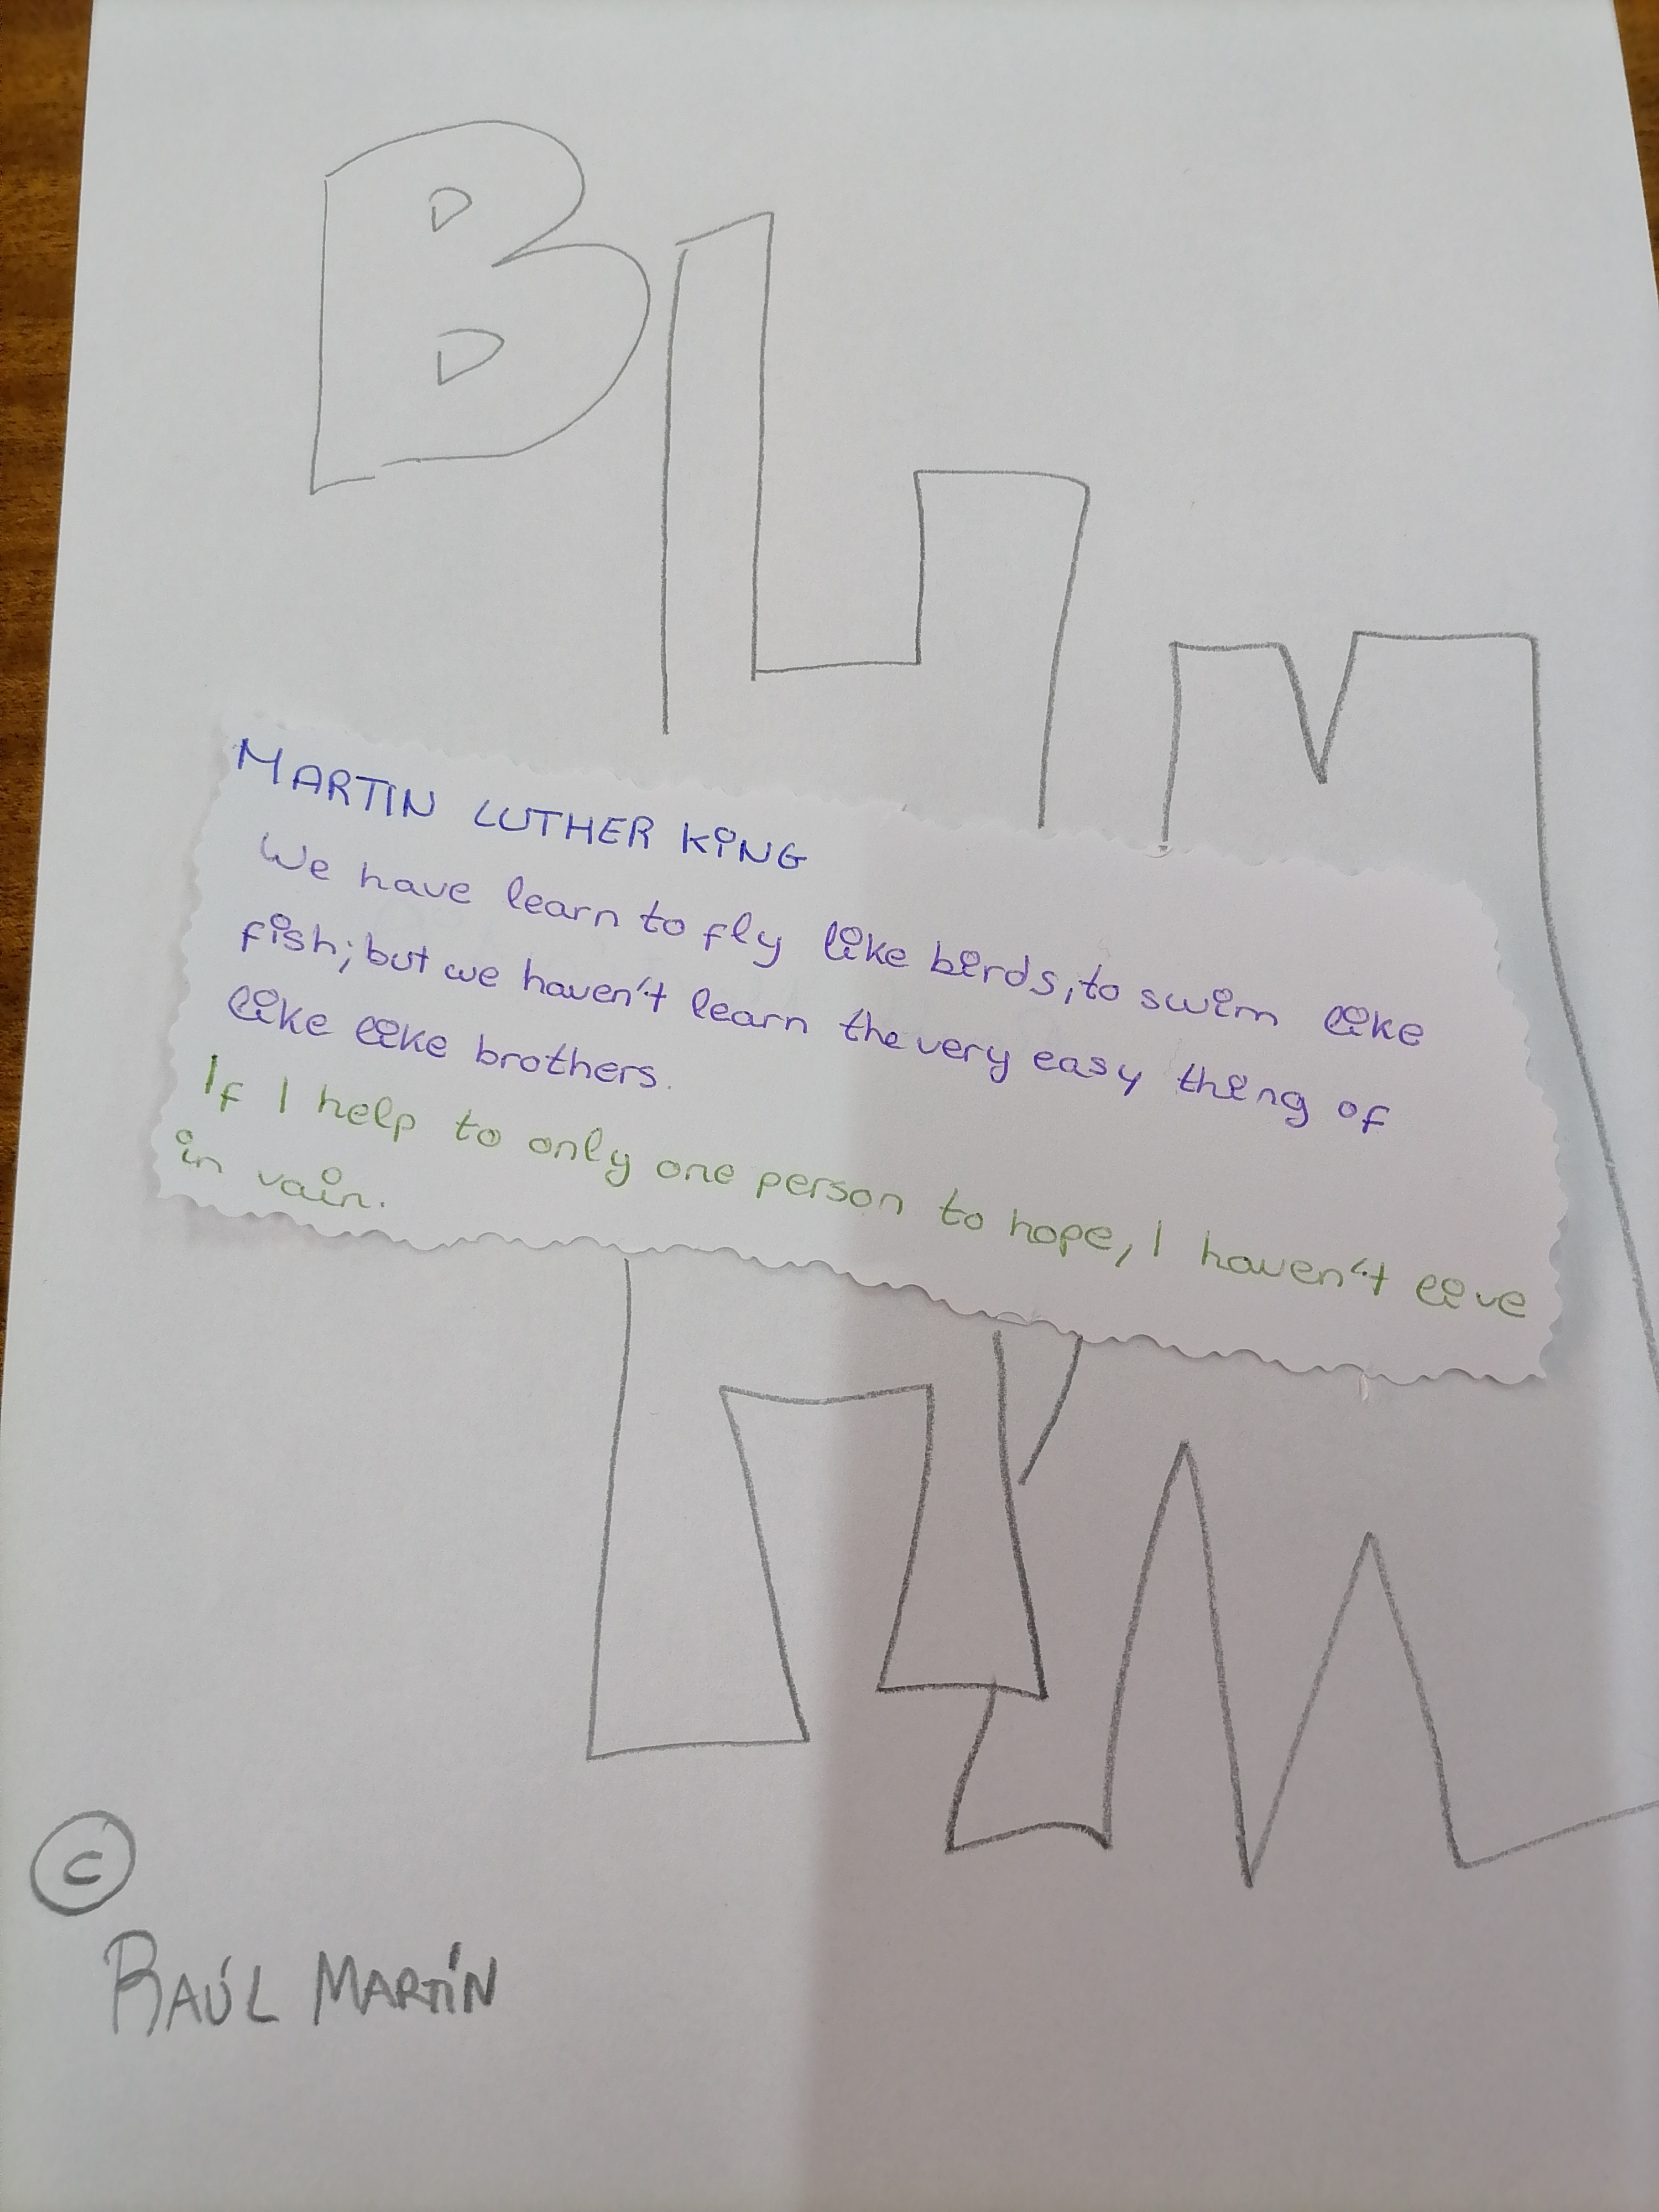 BLM
MARTIN LUTHER KING
We have learn to fly like birds, to swim like
fish; but we haven't learn the very easy thing of
like like brothers.
If I help to only one person to hope, I haven't live
in vain.
©
RAÚL MARTÍN